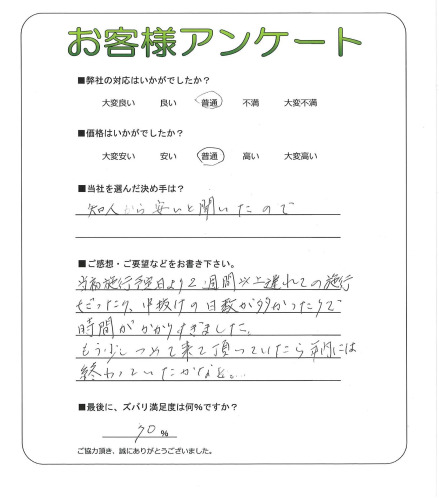 お客様アンケート
■弊社の対応はいかがでしたか?
大変良い 良い 普通 不満 大変不満
■価格はいかがでしたか?
大変安い 安い 普通 高い 大変高い
■当社を選んだ決め手は?
知人から安いと聞いたので
■ご感想・ご要望などをお書き下さい。
当初施行予定日より2週間以上遅れての施行
だったり、中抜けの日数が多かったりで
時間がかかりすぎました。
もう少しつめて来て頂っていたら 内には
終わっていたかなと。
■最後に、ズバリ満足度は何%ですか?
70 %
ご協力頂き、誠にありがとうございました。